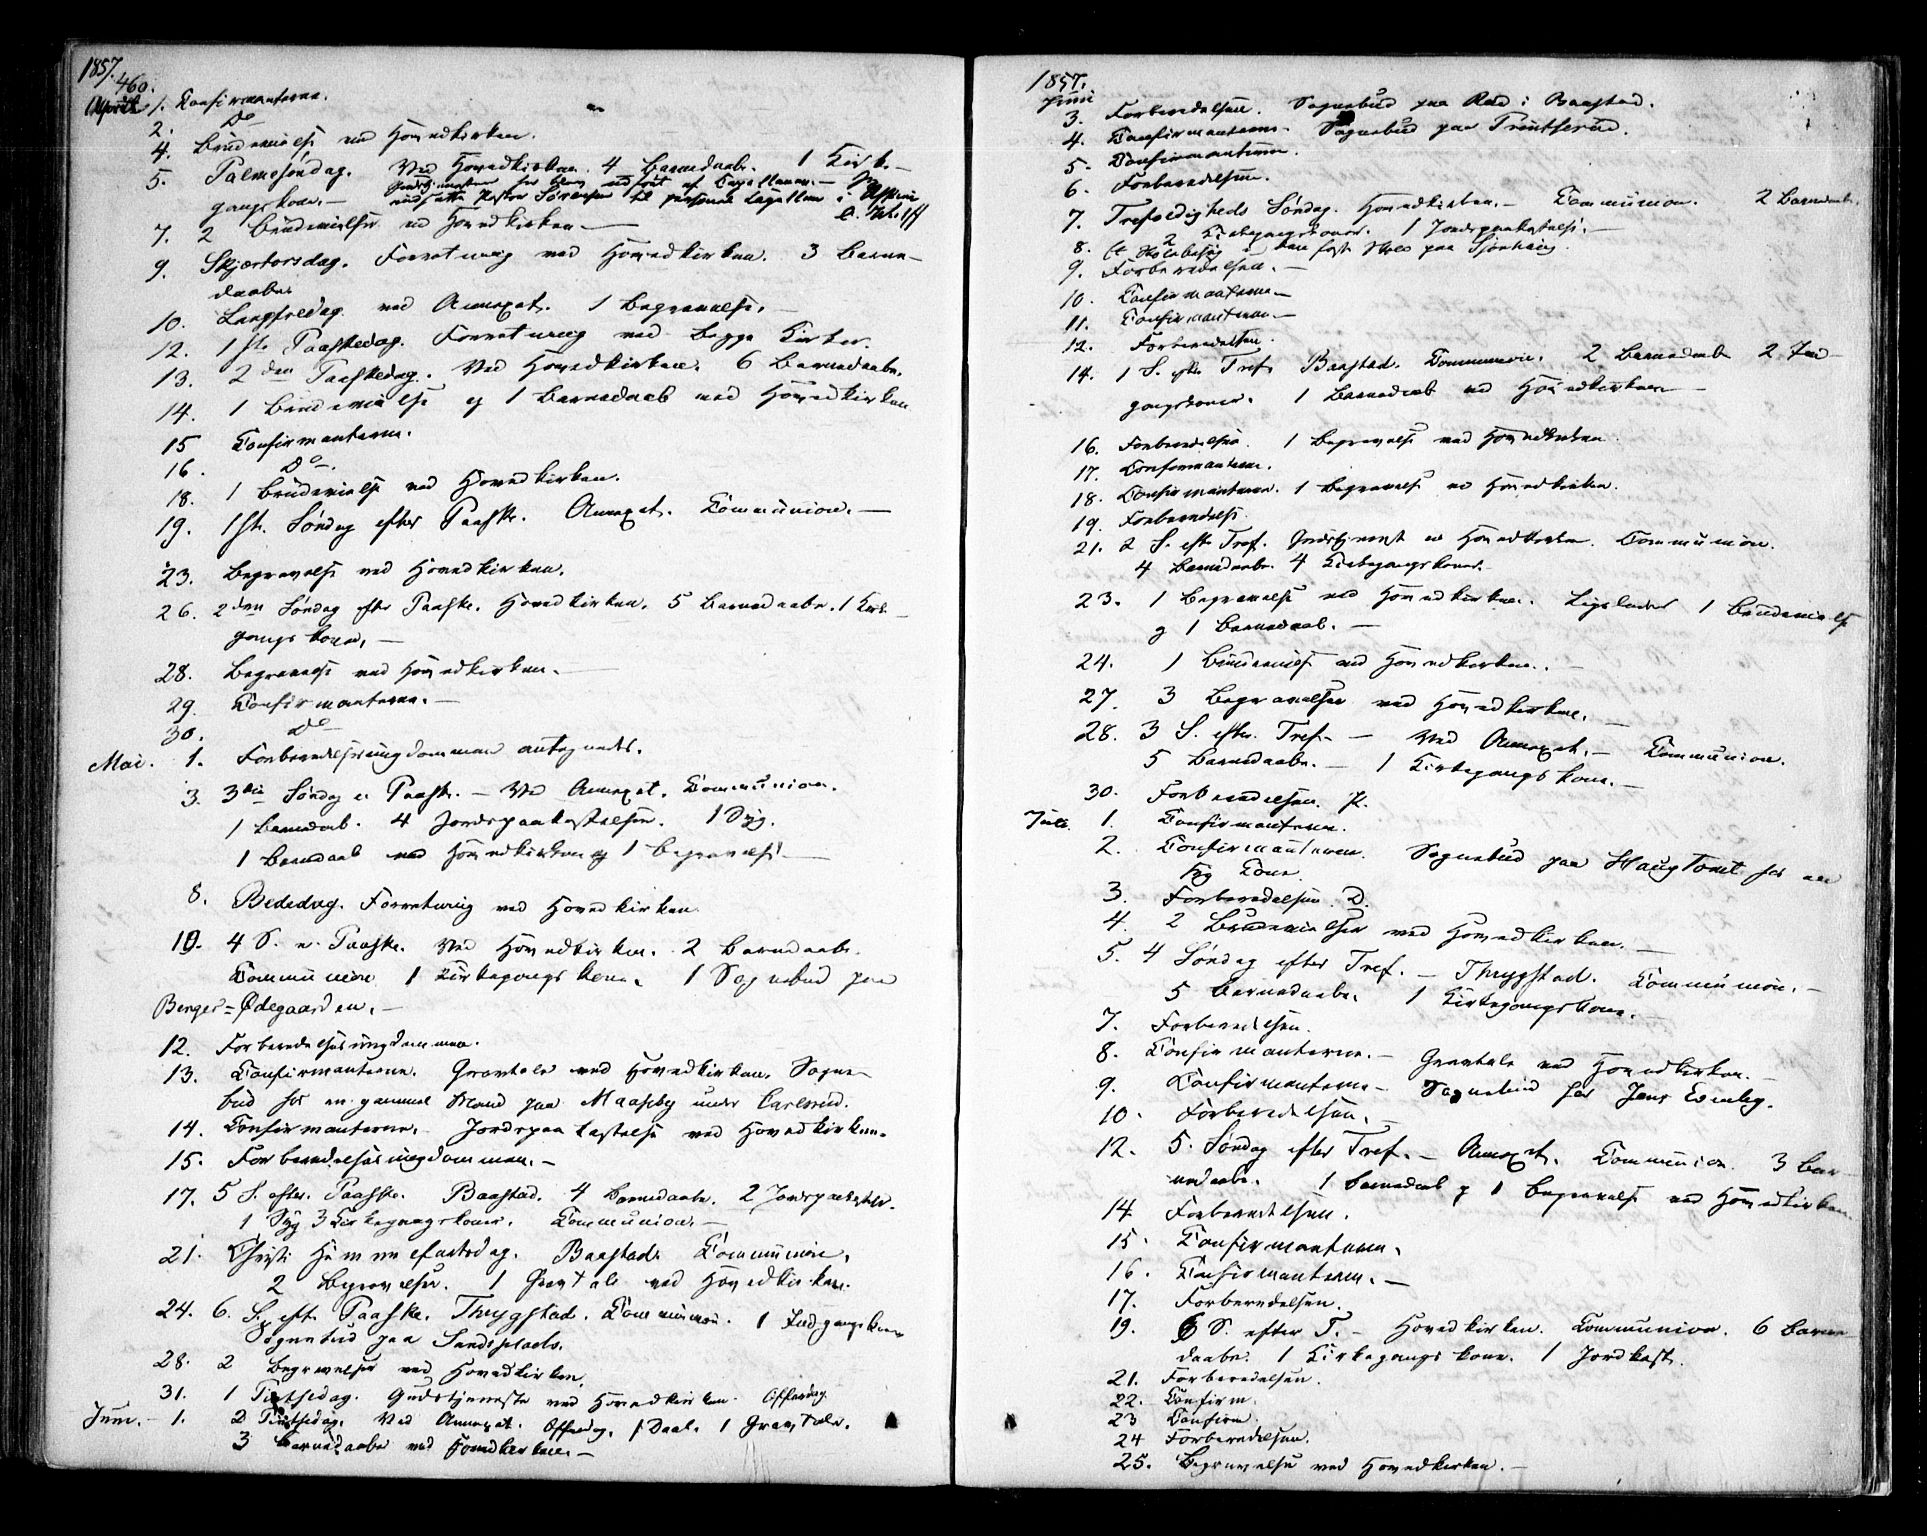 1857.
460.
April 1. Confirmanterne.
2. Do
4. Brudevielse ved Hovedkirken.
5. Palmesöndag. Ved Hovedkirken. 4 Barnedaabe. 1 Kirke-
gangskone.—
7. 2 Brudevielser ved Hovedkirken.—
9. Skjærtorsdag. Forretning ved Hovedkirken. 3 Barne-
daabe.
10. Langfredag ved Annexet. 1 Begravelse.
12. 1ste Paaskedag. Forretning ved begge Kirker.
13. 2den Paaskedag. Ved Hovedkirken. 6 Barnedaabe.
14. 1 Brudevielse og 1 Barnedaab ved Hovedkirken
15 Confirmanterne.
16. Do.
18. 1 Brudevielse ved Hovedkirken.
19. 1ste Söndag efter Paaske. Annexet. Communion.—
23. Begravelse ved Hovedkirken.
26. 2den Söndag efter Paaske. Hovedkirken. 5 Barnedaabe. 1 Kirke-
gangskone.—
28. Begravelse ved Hovedkirken.—
29. Confirmanterne.—
30. Do
Mai. 1. Forberedelsesungdommen antegnedes.
3. 3die Söndag e. Paaske.— Ved Annexet. Communion.
1 Barnedaab. 4 Jordspaakastelser. 1 Syg.
1 Barnedaab ved Hovedkirken og 1 Begravelse.—
8. Bededag. Forretning ved Hovedkirken
10. 4 S. e. Paaske. Ved Hovedkirken. 2 Barnedaabe.
Communion 1 Kirkegangskone. 1 Sognebud paa
Berger=Ødegaarden.—
12. Forberedelsesungdommen.
13. Confirmanterne. Gravtale ved Hovedkirken. Sogne-
bud for en gammel Mand paa Maaseby under Carlsrud.
14. Confirmanterne. Jordspaakastelse ved Hovedkirken.
15. Forberedelsesungdommen.—
17. 5 S. efter Paaske. Baastad. 4 Barnedaabe. 2 Jordspaakastels.
1 Syg 3 Kirkegangskoner. Communion.—
21. Christi Himmelfartsdag. Baastad. Communion.
2 Begravelser. 1 Gravtale ved Hovedkirken.
24. 6. S. eft. Paaske. Thrygstad. Communion. 1 Indgangskone
Sognebud paa Sandsplads.
28. 2 Begravelser ved Hovedkirken.
31. 1 Pintsedag. Gudstjeneste ved Hovedkirken. Offerdag
Juni.— 1. 2 Pintsedag. Ved Annexet. Offerdag. 1 Daab. 1 Gravtale.
3 Barnedaabe ved Hovedkirken.—
1857.
Juni
3. Forberedelsen. Sognebud paa Rud i Baastad.
4. Confirmanterne. Sognebud paa
5. Confirmanterne.
6. Forberedelsen.
7. Trefoldigheds Söndag. Hovedkirken.— Communion. 2 Barnedaab.
2 Kirkegangskoner. 1 Jordspaakastelse.—
8. den faste Skole paa
9. Forberedelsen.—
10. Confirmanterne—
11. Confirmanterne.—
12. Forberedelsen.
14. 1 S. efter Tref. Baastad. Communion. 2 Barnedaab 2 Ind-
gangskoner. 1 Barnedaab ved Hovedkirken—
16. Forberedelsen. 1 Begravelse ved Hovedkirken.
17. Confirmanterne.
18. Confirmanterne. 1 Begravelse ved Hovedkirken.
19. Forberedelse.
21. 2 S. efter Tref. Gudstjeneste ved Hovedkirken. Communion.
4 Barnedaabe. 4 Kirkegangskoner.
23. 1 Begravelse ved Hovedkirken. Ligeledes 1 Brudevielse
og 1 Barnedaab.—
24. 1 Brudevielse ved Hovedkirken.
27. 3 Begravelser ved Hovedkirken.—
28. 3 S. efter Tref.— Ved Annexet.— Communion.
5 Barnedaabe.— 1 Kirkegangskone.—
30. Forberedelsen.
Juli. 1. Confirmanterne.
2. Confirmanterne. Sognebud paa Haugtomt for en
syg Kone.
3. Forberedelsen. D.
4. 2 Brudevielser ved Hovedkirken.—
5. 4 Söndag efter Tref.— Thrygstad. Communion.—
5 Barnedaabe. 1 Kirkegangskone.—
7. Forberedelsen.
8. Confirmanterne.— Gravtale ved Hovedkirken.—
9. Confirmanterne— Sognebud for Jens
10. Forberedelsen.—
12. 5. Söndag efter Tref.— Annexet. Communion 3 Bar-
nedaabe. 1 Barnedaab og 1 Begravelse ved Hovedkirken.
14. Forberedelsen.
15. Confirmanterne.
16. Confirmanterne.—
17. Forberedelsen.
19. 6 S. efter T.— Hovedkirken. Communion. 6 Barne
daabe. 1 Kirkegangskone. 1 Jordkast.
21. Forberedelsen.
22. Confirm.
23 Confirm.
24 Forberedelsen.
25. Begravelse ved Hovedkirken.—